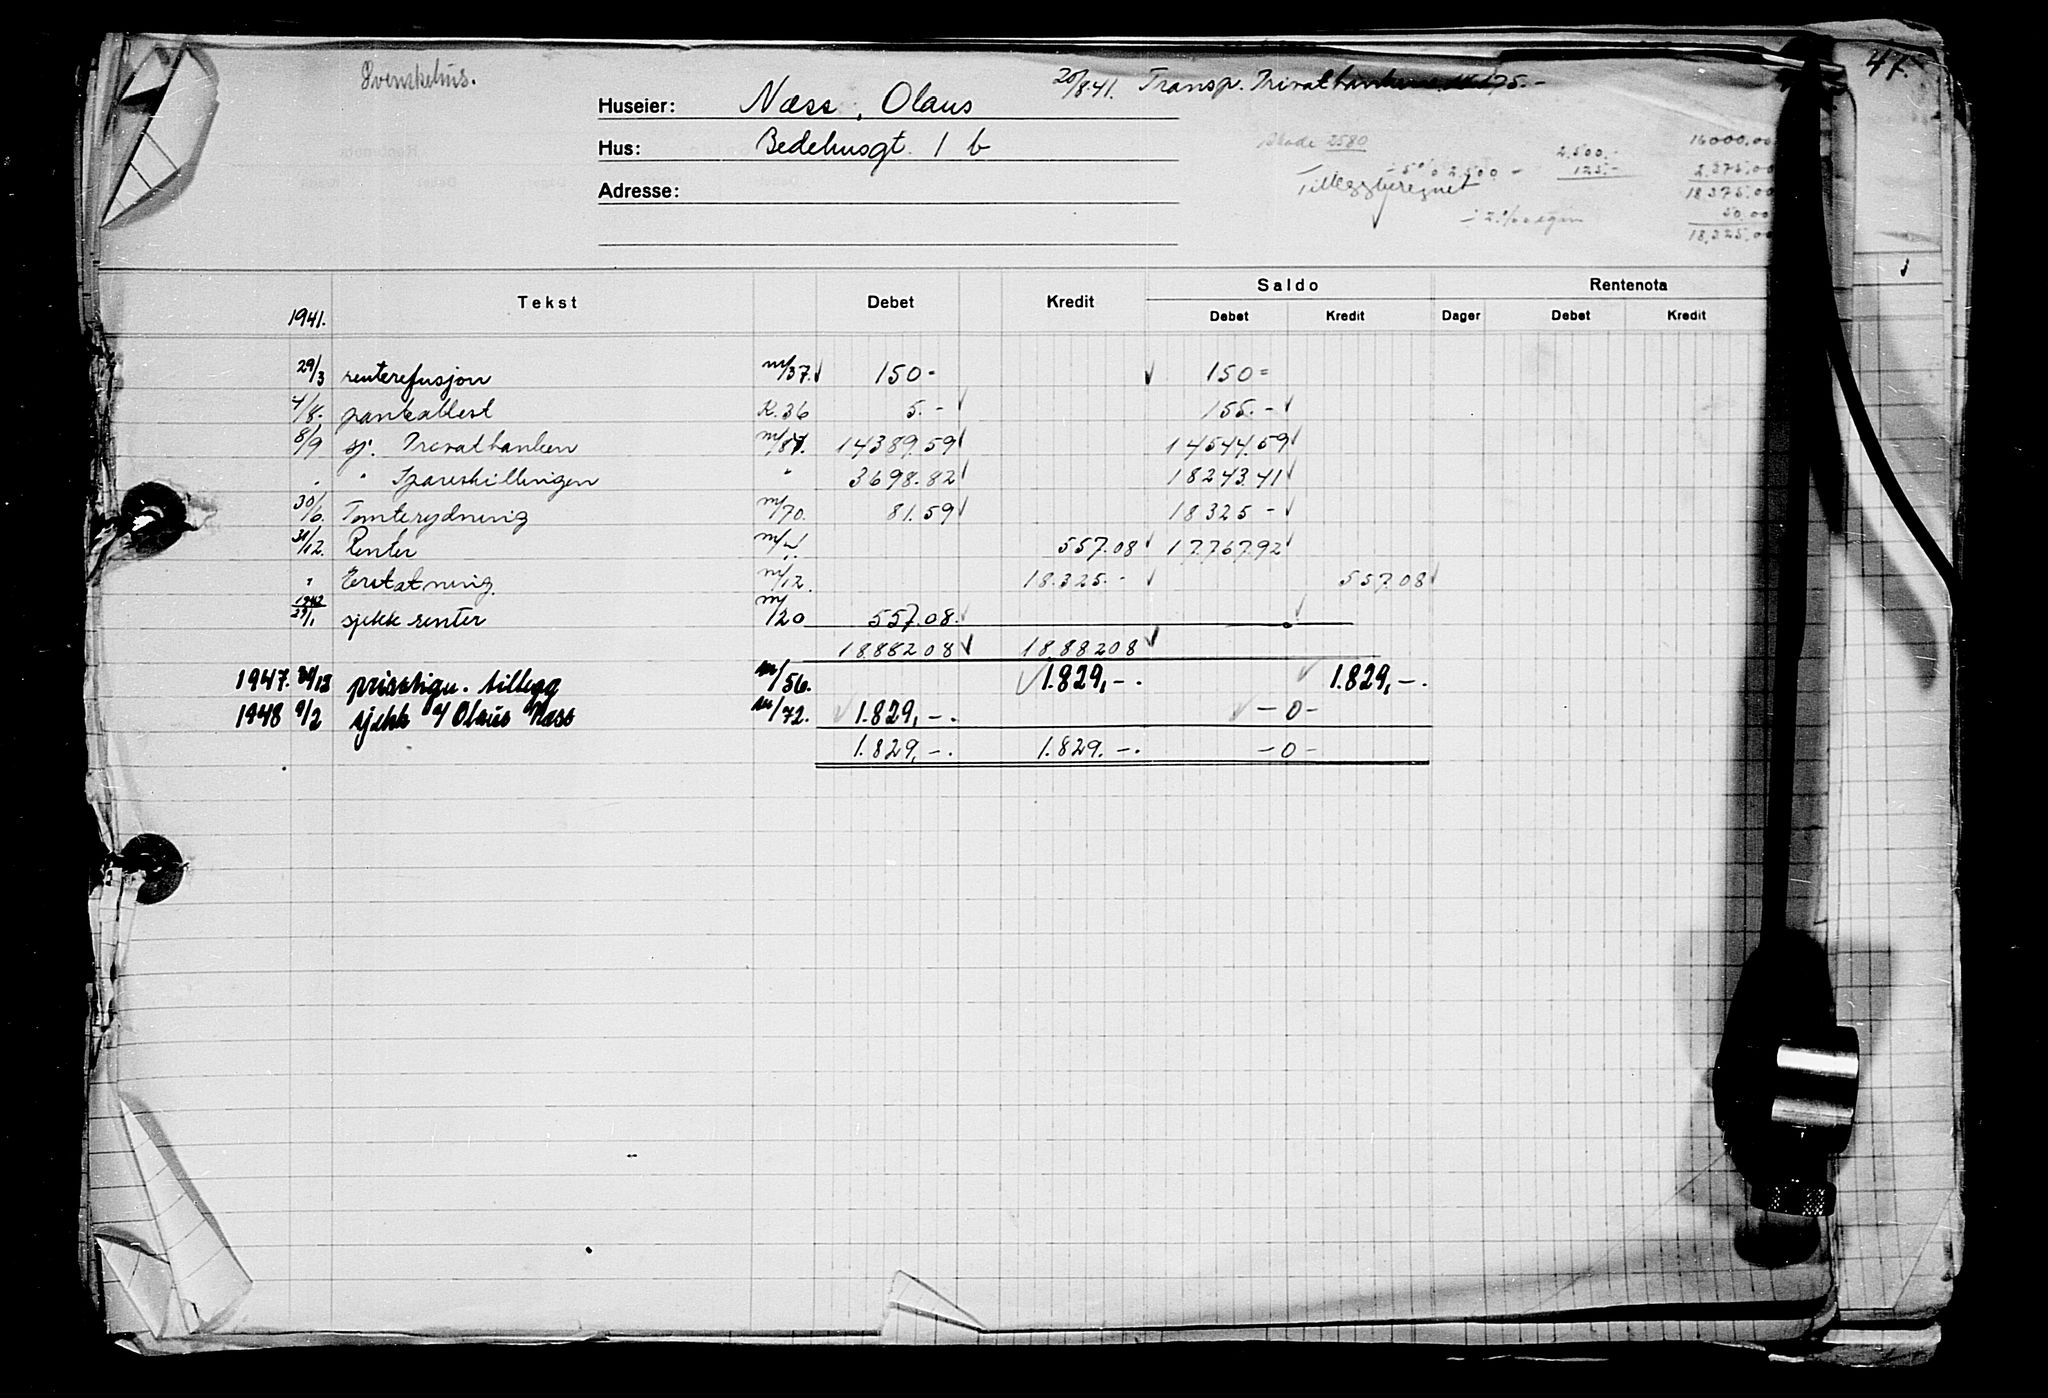 Svenskehus.
47.
Huseier: Næss, Olaus
20/8 41. Transp. Privatbanken
Hus: Bedehusgt. 1 b
Adresse:
Skade 2580
÷ 5% 2,500 -
2,500.-
125.-
Tilleggberegnet
16000,00
2,375,00
18,375,00
50,00
18,325,00
1941. Tekst Debet Kredit Saldo Debet Kredit Rentenota Dager Debet Kredit
29/3 renterefusjon m/37. 150- 150=
4/8. panteattest K.36 5.- 155.-
8/9 sj. Privatbanken m/87. 14389.59 14544.59
" " Spareskillingen " 3698.82 18243.41
30/6. Tomterydning m/70. 81.59 18325 -
31/12. Renter 557.08 17767.92
" Erstatning m/12. 18.325.- 557.08
1942 29/1 sjekk renter m/20 557.08.
18.88208 18.88208
1947. 12 prisstign. tillegg m/56. 1.829,-. 1.829,-.
1948 9/2 sjekk t/ Olaus Næss m/72. 1.829,-. -0-
1.829,-. 1.829.-. -0-